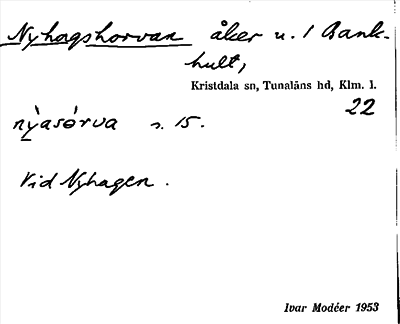 Nyhagshorvan åker u. 1 Bank-
hult,
Kristdala sn, Tunaläns hd, Klm. l.
22
nỳasórva s. 15.
Vid Nyhagen.
Ivar Modéer 1953